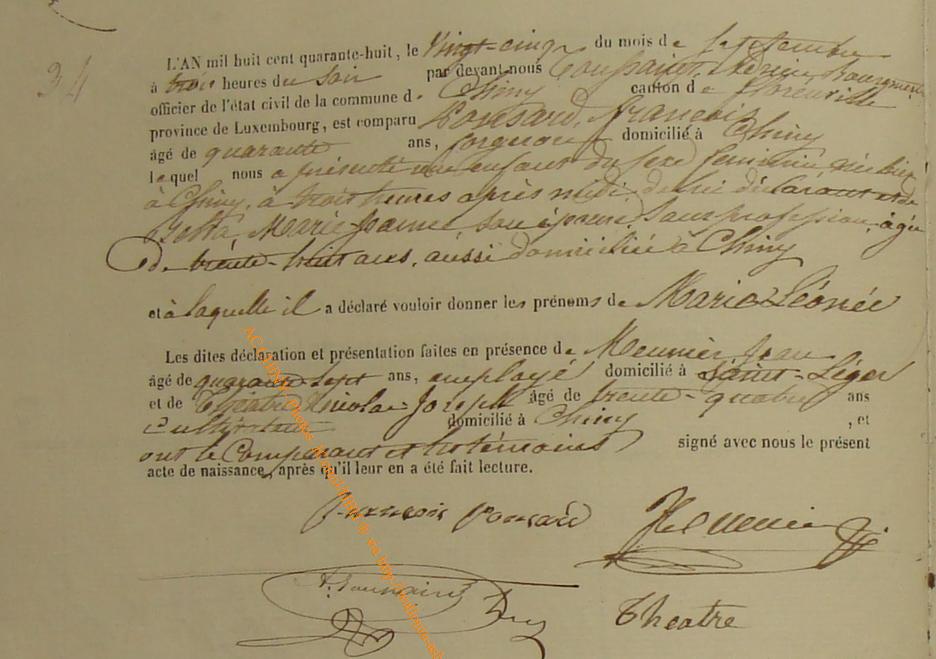 34
L'AN mil huit cent quarante-huit, le Vingt-cinq du mois de septembre
à trois heures du soir par devant nous
officier de l'état civil de la commune de Chiny canton de Florenville
province de Luxembourg, est comparu Ponsard, François
âgé de quarante ans, forgeron domicilié à Chiny
lequel nous a présenté un enfant du sexe féminin, né hier
à Chiny, à trois heures après midi, de lui déclarant et de
Marie Jeanne son épouse, sans profession, âgée
de trente-huit ans, aussi domiciliée à Chiny
et à laquelle il a déclaré vouloir donner les prénoms de Marie Léonée
Les dites déclaration et présentation faites en présence de Meunier Jean
âgé de quarante-sept ans, employé domicilié à Saint-Léger
et de Théatre Nicolas Joseph âgé de trente-quatre ans
cultivateur domicilié à Chiny, et
ont le Comparant et les témoins signé avec nous le présent
acte de naissance, après qu'il leur en a été fait lecture.
françois ponsard
JMeunier
Theatre